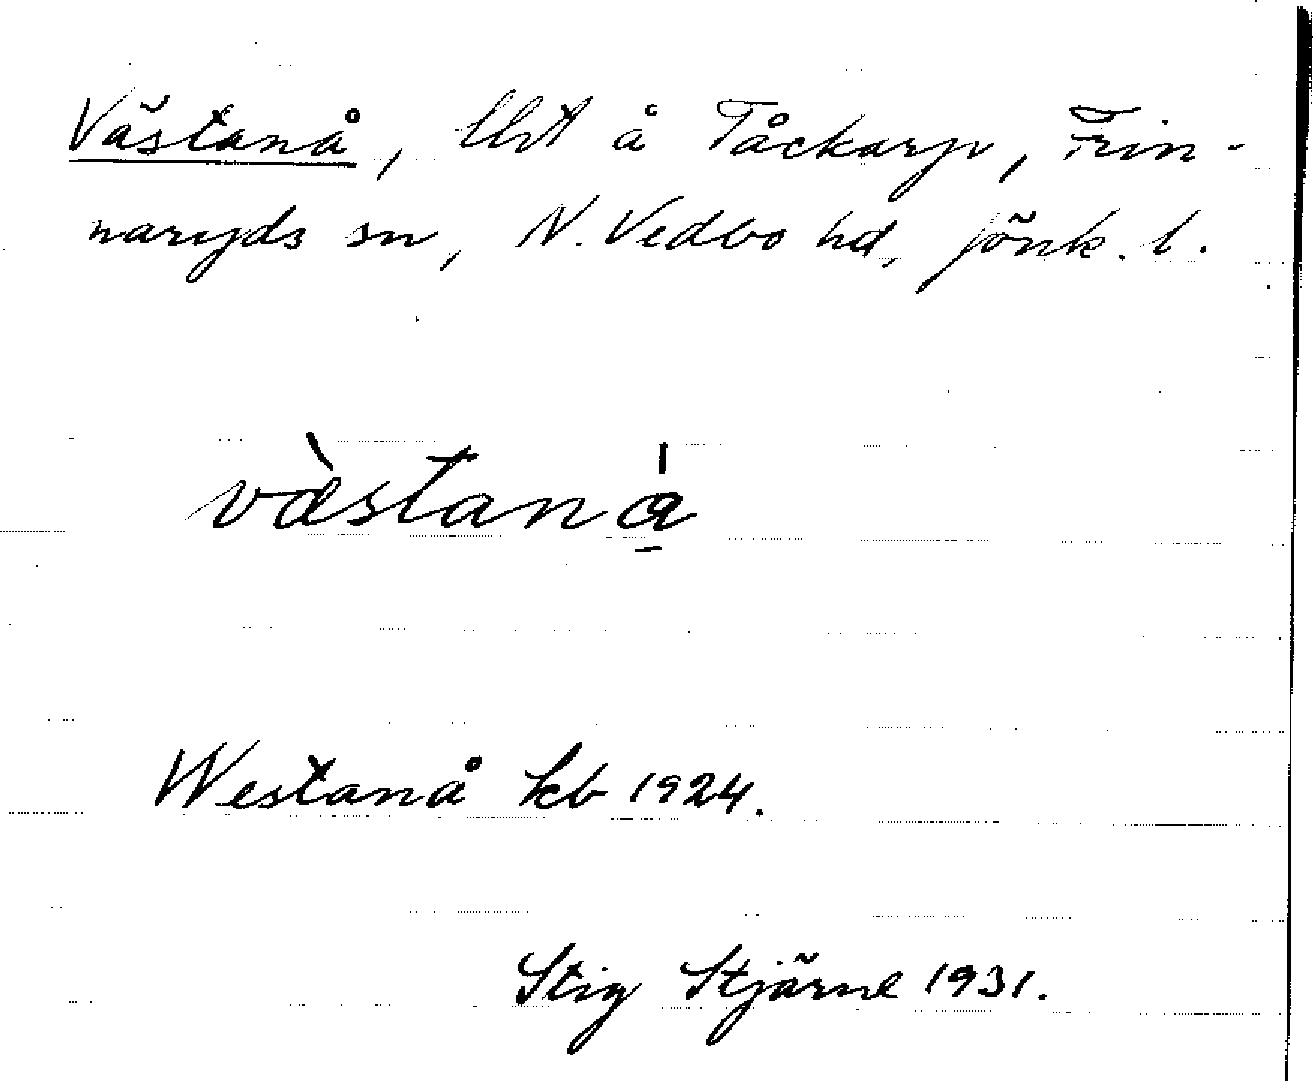 Västanå, lht å Tåckarp, Frin-
naryds sn, N. Vedbo hd, Jönk. l.
vàstaná̱
Westanå kb 1924.
Stig Stjärne 1931.